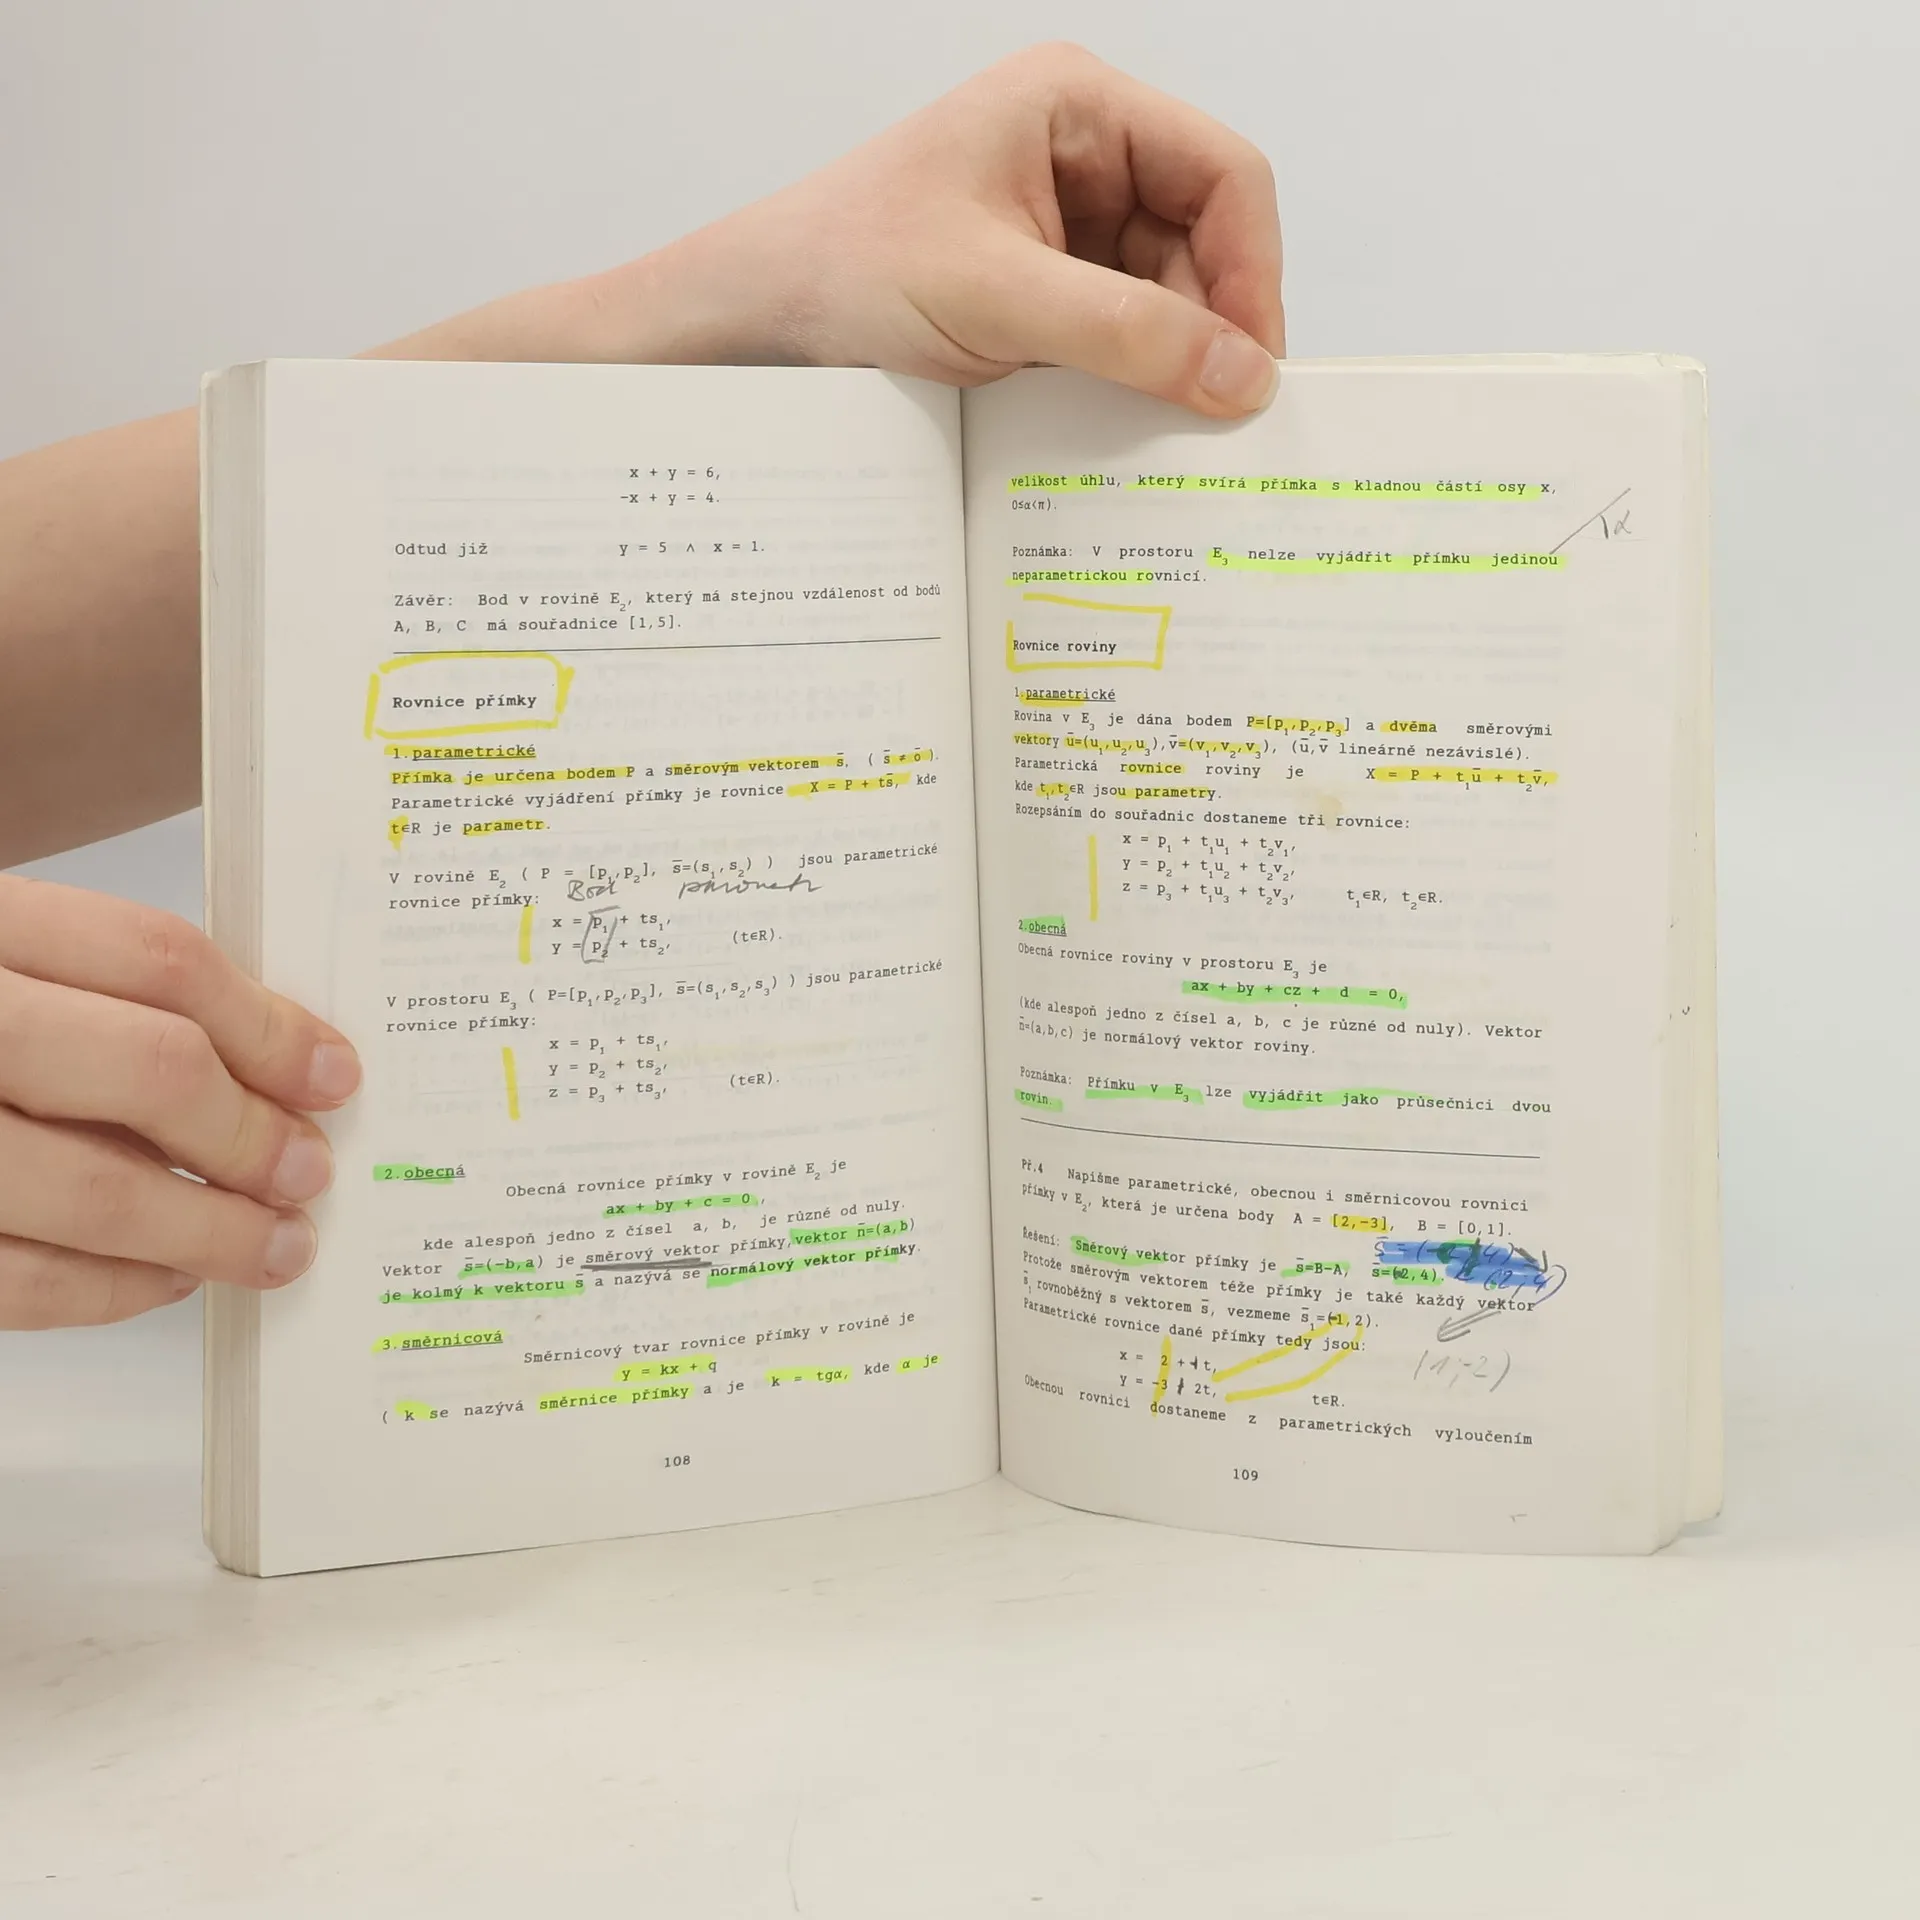 x + y = 6,
-x + y = 4.
Odtud již y = 5 ∧ x = 1.
Závěr: Bod v rovině E₂, který má stejnou vzdálenost od bodů
A, B, C má souřadnice [1,5].
Rovnice přímky
1.parametrické
Přímka je určena bodem P a směrovým vektorem s̄, ( s̄ ≠ ō ).
Parametrické vyjádření přímky je rovnice X = P + ts̄, kde
t∈R je parametr.
V rovině E₂ ( P = [p₁,p₂], s̄=(s₁,s₂) ) jsou parametrické
Bod
rovnice přímky:
x = p₁ + ts₁,
y = p₂ + ts₂, (t∈R).
V prostoru E₃ ( P=[p₁,p₂,p₃], s̄=(s₁,s₂,s₃) ) jsou parametrické
rovnice přímky:
x = p₁ + ts₁,
y = p₂ + ts₂,
z = p₃ + ts₃, (t∈R).
2.obecná
Obecná rovnice přímky v rovině E₂ je
ax + by + c = 0,
kde alespoň jedno z čísel a, b, je různé od nuly.
Vektor s̄=(-b,a) je směrový vektor přímky,vektor n̄=(a,b)
je kolmý k vektoru s̄ a nazývá se normálový vektor přímky.
3.směrnicová
Směrnicový tvar rovnice přímky v rovině je
y = kx + q
( k se nazývá směrnice přímky a je k = tgα, kde α je
108
velikost úhlu, který svírá přímka s kladnou částí osy x,
0≤α<π).
α
Poznámka: V prostoru E₃ nelze vyjádřit přímku jedinou
neparametrickou rovnicí.
Rovnice roviny
1.parametrické
Rovina v E₃ je dána bodem P=[p₁,p₂,p₃] a dvěma směrovými
vektory ū=(u₁,u₂,u₃),v̄=(v₁,v₂,v₃), (ū,v̄ lineárně nezávislé).
Parametrická rovnice roviny je X = P + t₁ū + t₂v̄,
kde t₁,t₂∈R jsou parametry.
Rozepsáním do souřadnic dostaneme tři rovnice:
x = p₁ + t₁u₁ + t₂v₁,
y = p₂ + t₁u₂ + t₂v₂,
z = p₃ + t₁u₃ + t₂v₃, t₁∈R, t₂∈R.
2.obecná
Obecná rovnice roviny v prostoru E₃ je
ax + by + cz + d = 0,
(kde alespoň jedno z čísel a, b, c je různé od nuly). Vektor
n̄=(a,b,c) je normálový vektor roviny.
Poznámka: Přímku v E₃ lze vyjádřit jako průsečnici dvou
rovin.
Př.4 Napišme parametrické, obecnou i směrnicovou rovnici
přímky v E₂, která je určena body A = [2,-3], B = [0,1].
Řešení: Směrový vektor přímky je s̄=B-A, s̄=(2,4).
(2;-4)
Protože směrovým vektorem téže přímky je také každý vektor
s̄₁ rovnoběžný s vektorem s̄, vezmeme s̄₁=(-1,2).
Parametrické rovnice dané přímky tedy jsou:
(1;-2)
x = 2 + t,
y = -3 + 2t, t∈R.
Obecnou rovnici dostaneme z parametrických vyloučením
109